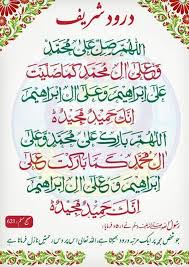 درود شریف
اَللّٰهُمَّ صَلِّ عَلٰى مُحَمَّدٍ
وَّعَلٰى اٰلِ مُحَمَّدٍ كَمَا صَلَّيْتَ
عَلٰى اِبْرَاهِيْمَ وَعَلٰى اٰلِ اِبْرَاهِيْمَ
اِنَّكَ حَمِيْدٌ مَّجِيْدٌ
اَللّٰهُمَّ بَارِكْ عَلٰى مُحَمَّدٍ وَّعَلٰى
اٰلِ مُحَمَّدٍ كَمَا بَارَكْتَ عَلٰى
اِبْرَاهِيْمَ وَعَلٰى اٰلِ اِبْرَاهِيْمَ
اِنَّكَ حَمِيْدٌ مَّجِيْدٌ
رسول اللہ ﷺ نے فرمایا
جو شخص مجھ پر ایک مرتبہ درود بھیجتا ہے، اللہ تعالیٰ اس پر دس رحمتیں نازل فرماتا ہے